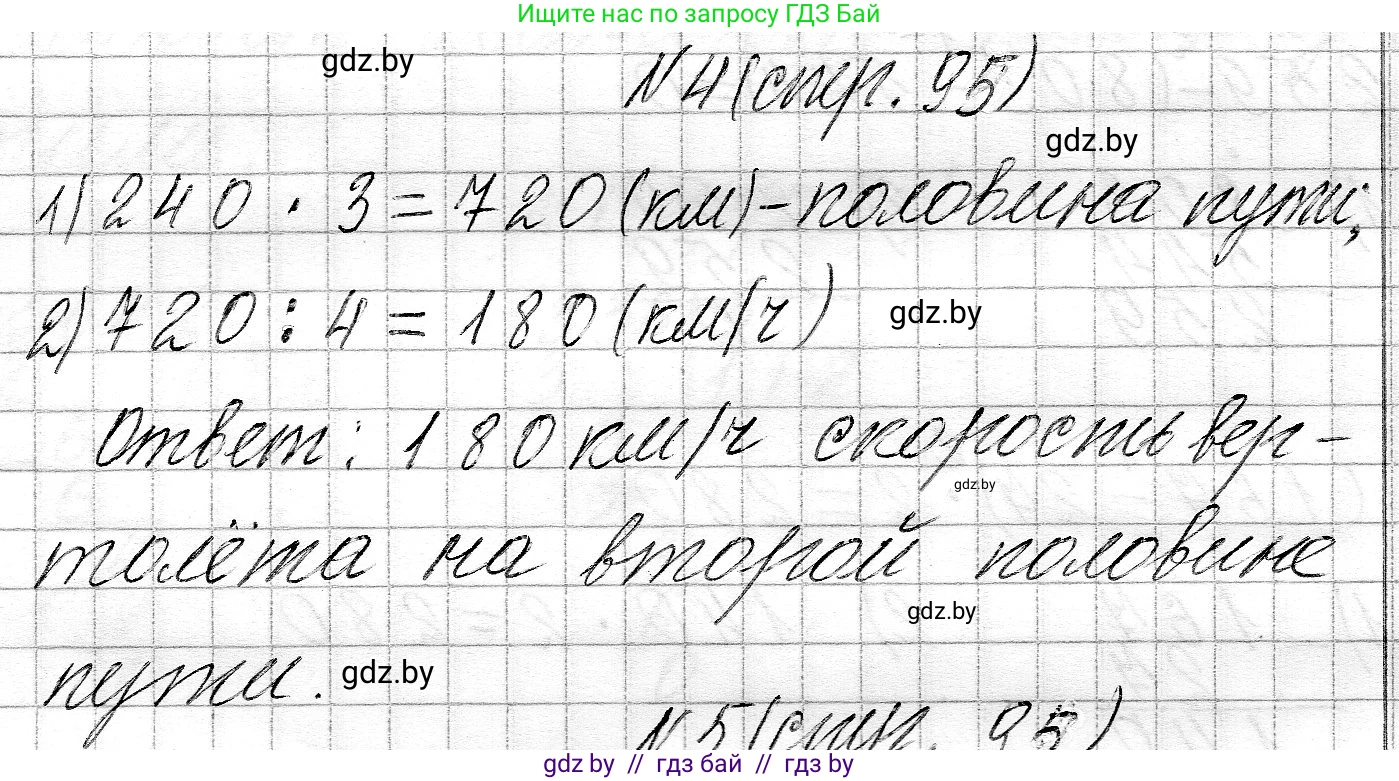 Ищите нас по запросу ГДЗ Бай
gdz.by
№4(стр. 95)
gdz.by
1) 240 · 3 = 720 (км) - половина пути;
2) 720 : 4 = 180 (км/ч)
gdz.by
Ответ: 180 км/ч скорость вер-
gdz.by
толёта на второй половине
gdz.by
пути.
gdz.by
№5(стр. 95)
gdz by // гдз бай // гдз by